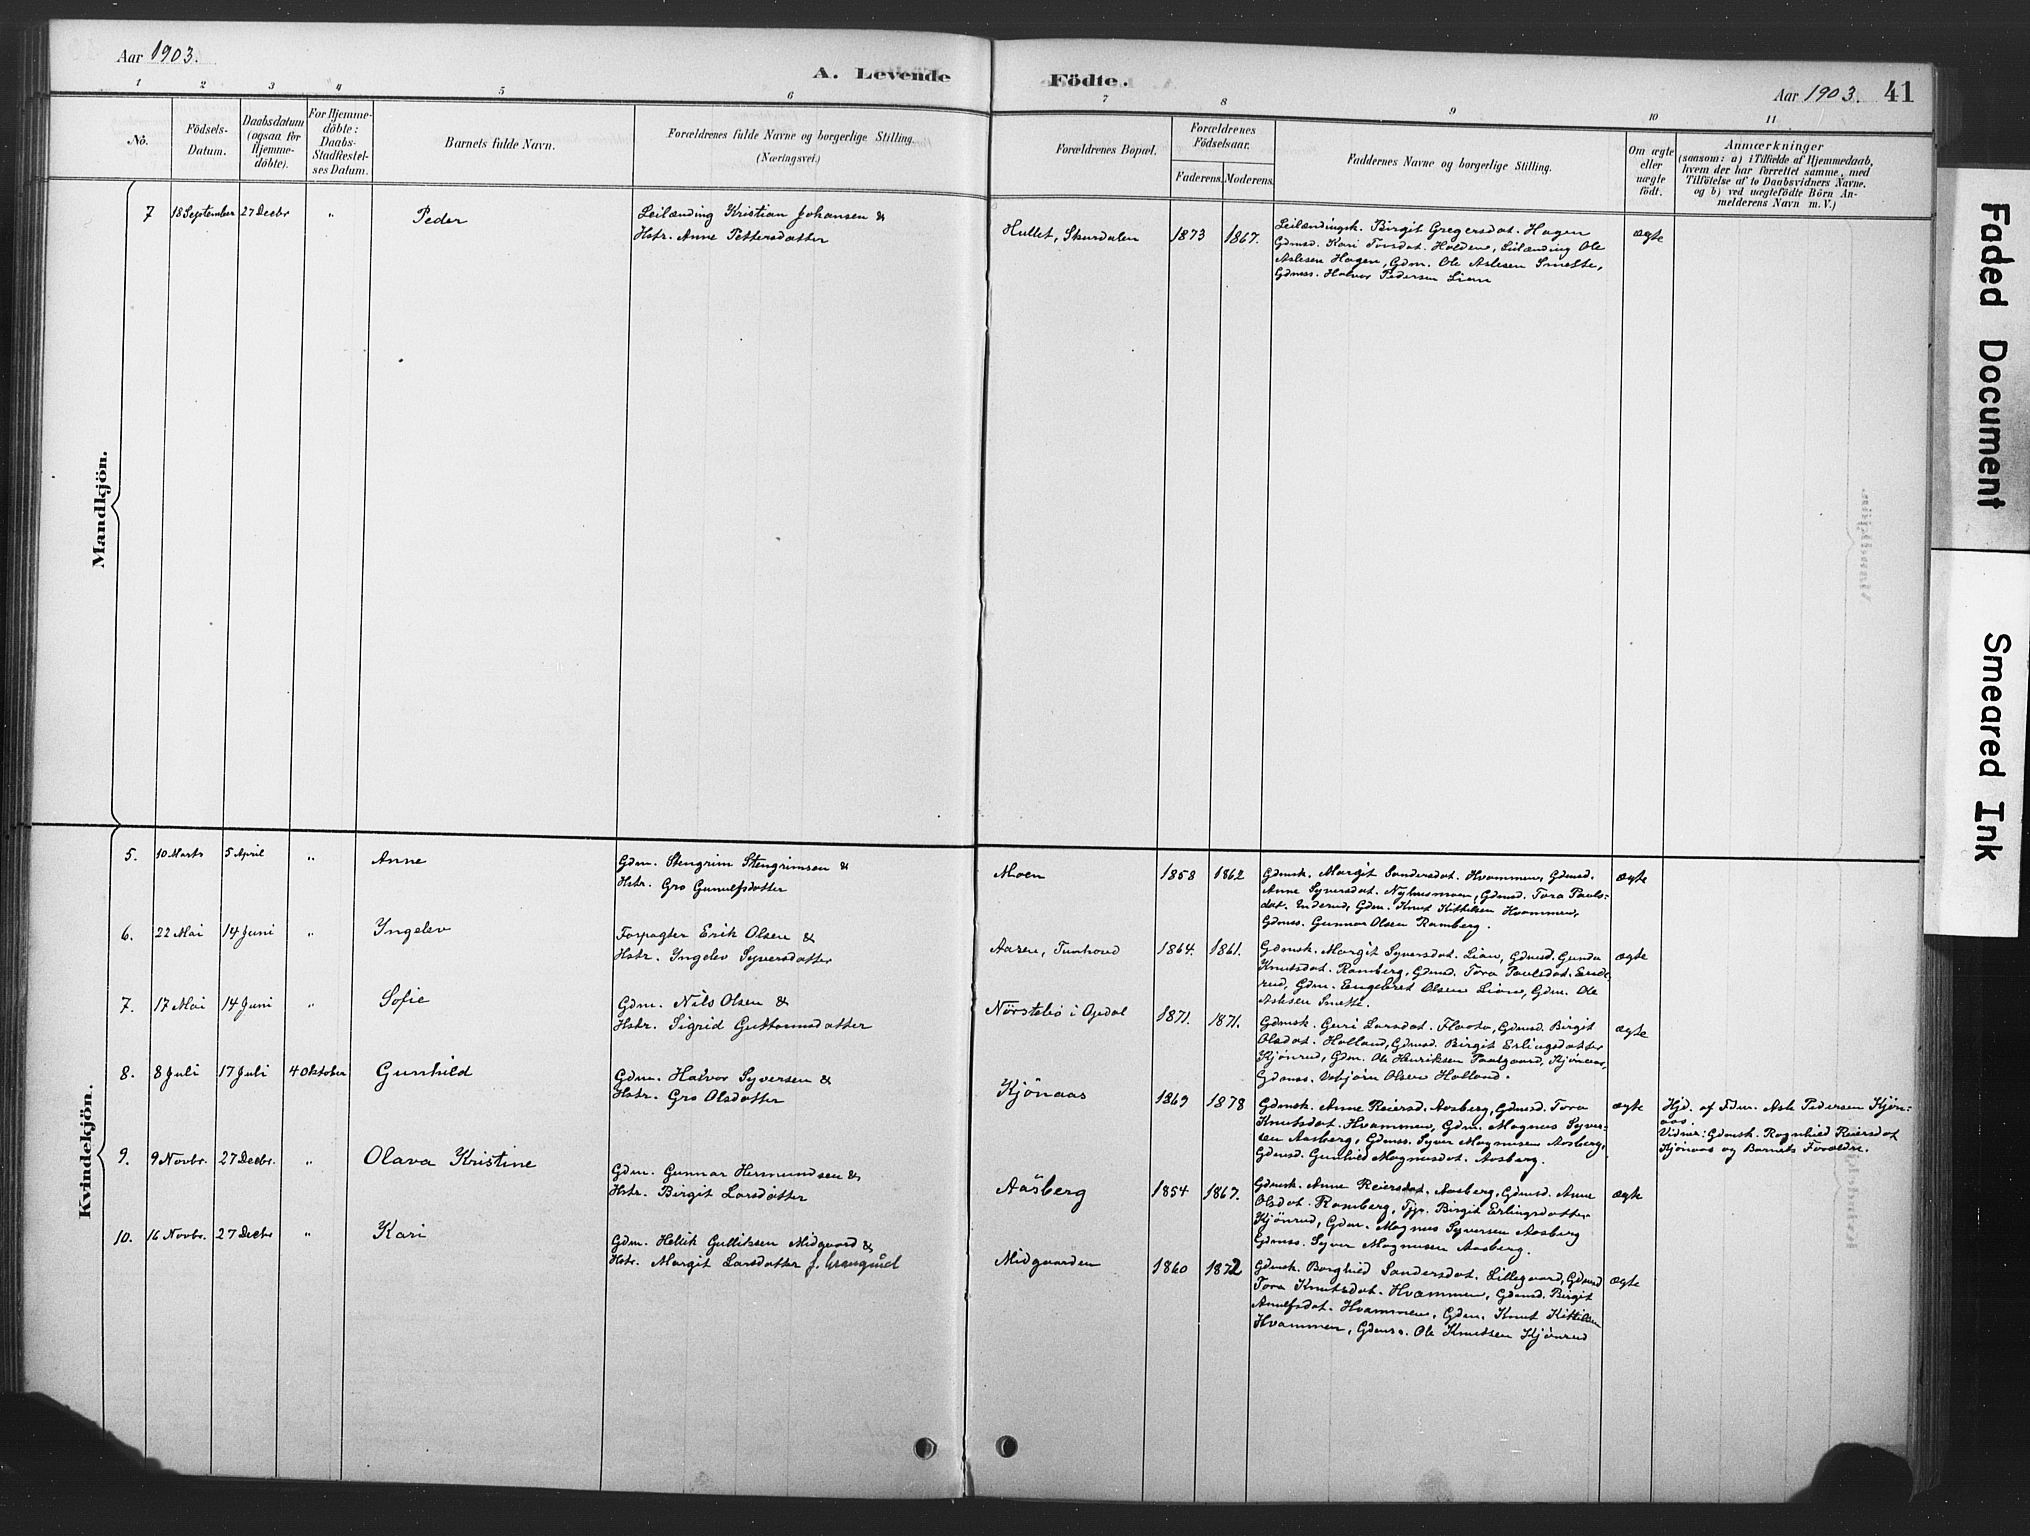 Aar 1903.
A. Levende
Födte.
Aar 1903. 41
1 2 3 4 5 6 7 8 9 10 11
No.
Födsels-
Datum.
Daabsdatum
(ogsaa for
Hjemme-
döbte).
For Hjemme-
döbte:
Daabs-
Stadfæstel-
ses Datum.
Barnets fulde Navn.
Forældrenes fulde Navne og borgerlige Stilling.
(Næringsvei.)
Forældrenes Bopæl.
Forældrenes
Födselsaar.
Faderens. Moderens.
Faddernes Navne og borgerlige Stilling.
Om ægte
eller
uægte
födt.
Anmærkninger
(saasom: a) i Tilfælde af Hjemmedaab,
hvem der har forrettet samme, med
Tilföielse af to Daabsvidners Navne,
og b) ved uægtefödte Börn An-
melderens Navn m. V.)
Mandkjön.
7 18 September 27 Decbr " Peder
Leilænding Kristian Johansen &
Hstr. Anne Pettersdatter
Hullet, Skurdalen 1873 1867.
Leilændingsk. Birgit Gregersdat. Hagen
Gdmsd. Kari Torsdat. Holdene, Leilænding Ole
Aslesen Hagen, Gdm. Ole Aslesen Smette,
Gdmss. Halvor Pedersen Lien
ægte
Kvindekjön.
5. 10 Marts 5 April " Anne
Gdm. Stengrim Stengrimsen &
Hstr. Gro Gunulfsdatter
Moen 1858 1862
Gdmsk. Margit Sandersdat. Hvammen, Gdmsd.
Anne Syversdat. Nyhusmoen, Gdmsd. Tora Pauls-
dat. Enderud, Gdm. Knut Kittilsen Hvammen,
Gdmss. Gunnar Olsen Ramberg.
ægte
6. 22 Mai 14 Juni " Ingelev
Forpagter Erik Olsen &
Hstr. Ingelev Syversdatter
Aasen, Tunhovd 1864. 1861.
Gdmsk. Margit Syversdat. Lian, Gdmsd. Gunda
Knutsdat. Ramberg, Gdmsd. Tora Paulsdat. Ende-
rud, Gdm. Engebret Olsen Lian, Gdm. Ole
Aslesen Smette.
ægte
7. 17 Mai 14 Juni " Sofie
Gdm. Nils Olsen &
Hstr. Sigrid Guttormsdatter
Nörstebö i Opdal 1871. 1871.
Gdmsk. Guri Larsdat. Flaata, Gdmsd. Birgit
Olsdat. Holland, Gdmsd. Birgit Erlingsdatter
Kjönrud, Gdm. Ole Henriksen Paalgaard, Kjönaas,
Gdmss. Vebjörn Olsen Holland.
ægte
8. 8 Juli 17 Juli 4 Oktober Gunhild
Gdm. Halvor Syversen &
Hstr. Gro Olsdatter
Kjönaas 1869 1878
Gdmsk. Anne Reiersd. Aasberg, Gdmsd. Tora
Knutsdat. Hvammen, Gdm. Magnus Syver-
sen Aasberg, Gdmss. Syver Magnusen Aasberg,
Gdmsd. Gunhild Magnusdat. Aasberg.
ægte
Hjd. af Fdm. Asle Pedersen Kjön-
aas.
Vidner: Gdmsk. Ragnhild Reiersdat
Kjönaas og Barnets Forældre.
9. 9 Novbr. 27 Decbr. " Olava Kristine
Gdm. Gunnar Hermundsen &
Hstr. Birgit Larsdatter
Aasberg 1854 1867.
Gdmsk. Anne Reiersdat. Aasberg, Gdmsd. Anne
Olsdat. Ramberg, Tjp. Birgit Erlingsdatter
Kjönrud, Gdm. Magnus Syversen Aasberg
Gdmss. Syver Magnusen Aasberg.
ægte
10. 16 Novbr. 27 Decbr " Kari
Gdm. Hellik Gulliksen Midgaard &
Hstr. Margit Larsdatter f.
Midgaarden 1860 1872
Gdmsk. Borghild Sandersdat. Lillegaard, Gdmsd
Tora Knutsdat. Hvammen, Gdmsd. Birgit
Arnulfsdat. Hvammen, Gdm. Knut Kittilsen
Hvammen, Gdmss. Ole Knutsen Kjönrud
ægte
Faded Document
Smeared Ink